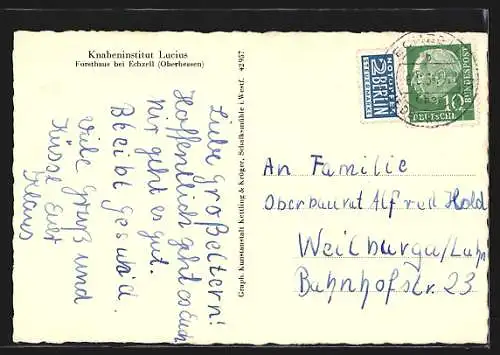 Knabeninstitut Lucius
Forsthaus bei Echzell (Oberhessen)
Liebe Großeltern!
Hoffentlich geht es Euch
Mir geht es gut.
Bleibt gesund.
Viele Grüß und
Küsse Euer
Klaus
Graph. Kunstanstalt Kettling & Krüger, Schalksmühle i. Westf. 42957
NOTOPFER
2 BERLIN
STEUERMARKE
10
DEUTSCHE
BUNDESPOST
An Familie
Oberbaurat Alfred Hold
Weilburga/Lahn
Bahnhofstr. 23